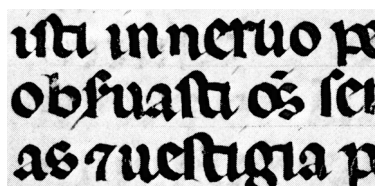 iſti in neruo pe
obſuaſti os̄ ſe
as ⁊ ueſtigia p